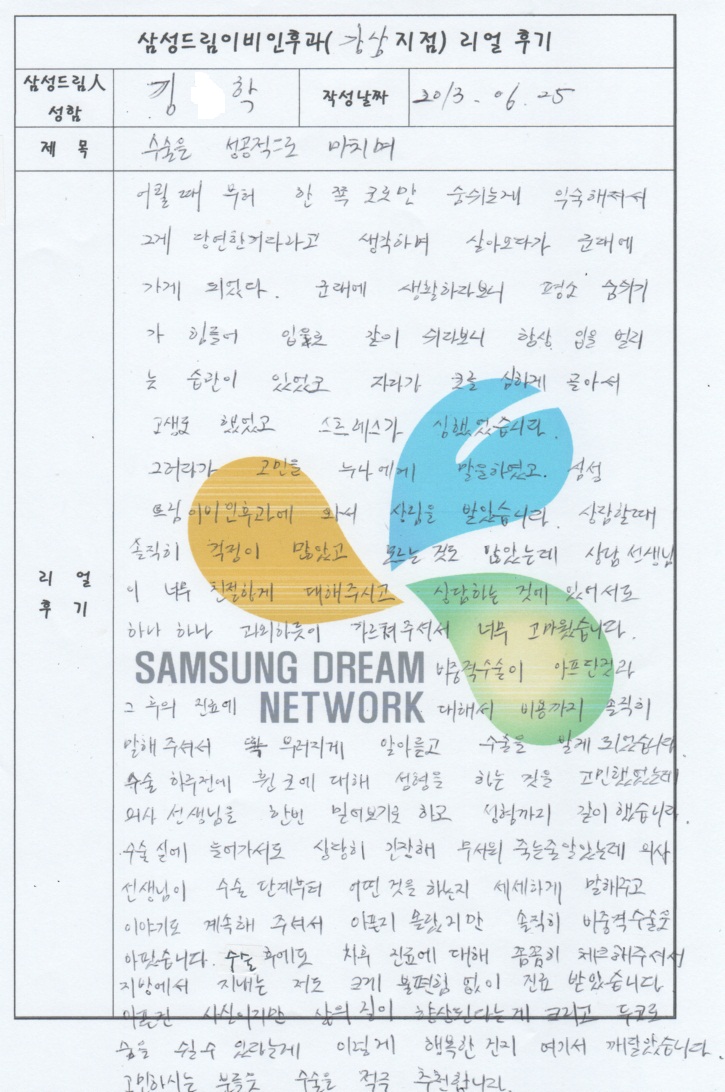 삼성드림이비인후과(강남지점) 리얼 후기
삼성드림人 성함 김 학 작성날짜 2013. 06. 25
제 목 수술을 성공적으로 마치며
리 얼 후 기
어릴 때 부터 한 쪽 코로만 숨쉬는게 익숙해져서
그게 당연한거다라고 생각하며 살아오다가 군대에
가게 되었다. 군대에 생활하다보니 평소 숨쉬기
가 힘들어 입으로 같이 쉬다보니 항상 입을 벌리
는 습관이 있었고 자다가 코를 심하게 골아서
고생도 했었고 스트레스가 심했었습니다.
그러다가 고민을 누나에게 말을하였고. 삼성
드림이비인후과에 와서 상담을 받았습니다. 상담할때
솔직히 걱정이 많았고 모르는 것도 많았는데 상담 선생님
이 너무 친절하게 대해주시고 상담하는 것에 있어서도
하나 하나 과외하듯이 가르쳐주셔서 너무 고마웠습니다.
SAMSUNG DREAM NETWORK
비중격수술이 아프단것과
그 후의 진료에 대해서 비용까지 솔직히
말해 주셔서 딱 부러지게 알아듣고 수술을 받게 되었습니다.
수술 하루전에 휜 코에 대해 성형을 하는 것을 고민했었는데
의사 선생님을 한번 믿어보기로 하고 성형까지 같이 했습니다.
수술 실에 들어가서도 상당히 긴장해 무서워 죽는줄알았는데 의사
선생님이 수술 단계부터 어떤 것을 하는지 세세하게 말해주고
이야기도 계속해 주셔서 아픈지 몰랐지만 솔직히 비중격수술은
아팠습니다. 수술 후에도 차후 진료에 대해 꼼꼼히 체크해주셔서
지방에서 지내는 저도 크게 불편함 없이 진료 받았습니다.
아픈건 사실이지만 삶의 질이 향상된다는게 크리고 두코로
숨을 쉴수 있다는게 이렇게 행복한 건지 여기서 깨달았습니다.
고민하시는 분들은 수술을 적극 추천합니다.